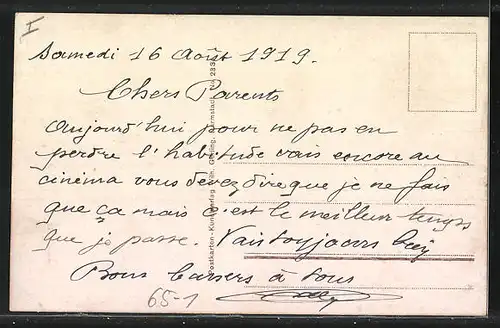 I
Samedi 16 Août 1919.
Chers Parents
Aujourd'hui pour ne pas en
perdre l'habitude vais encore au
cinéma vous devez dire que je ne fais
que ça mais c'est le meilleur temps
que je passe. Vais toujours bien
Bons baisers à tous
65-1